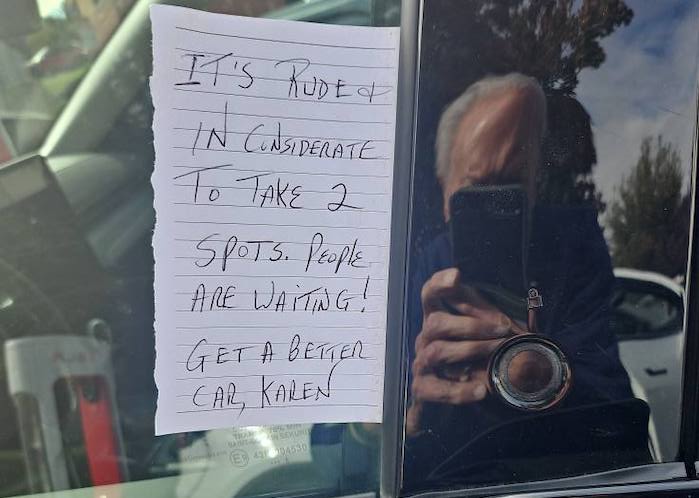 IT'S RUDE &
INCONSIDERATE
TO TAKE 2
SPOTS. PEOPLE
ARE WAITING!
GET A BETTER
CAR, KAREN